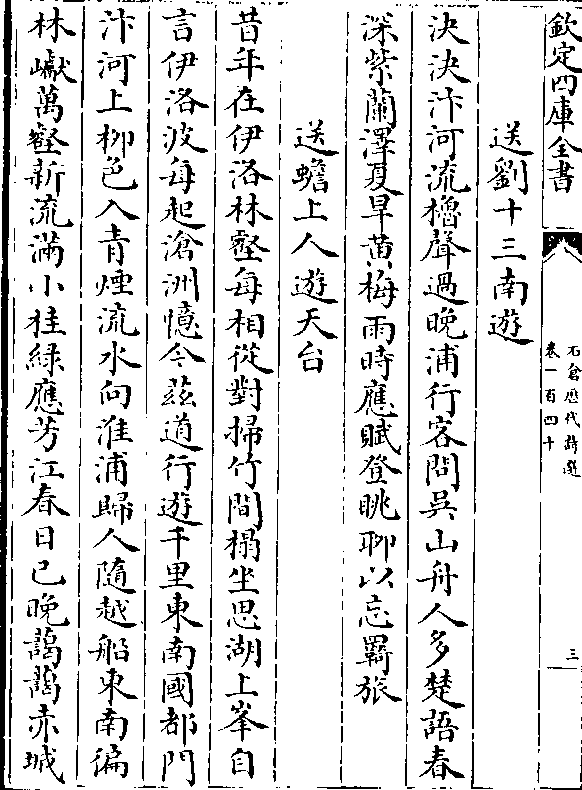 欽定四庫全書
石倉歷代詩選
卷一百四十
三
送劉十三南遊
決決汴河流櫓聲過晚浦行客問吳山舟人多楚語春
深紫蘭澤夏早黄梅雨時應賦登眺聊以忘羇旅
送蟾上人遊天台
昔年在伊洛林壑每相從對掃竹間榻坐思湖上峯自
言伊洛波每起滄洲憶今兹道行遊千里東南國都門
汴河上柳色入青煙流水向淮浦歸人隨越船東南徧
林巘萬壑新流滿小桂緑應芳江春日已晚藹藹赤城